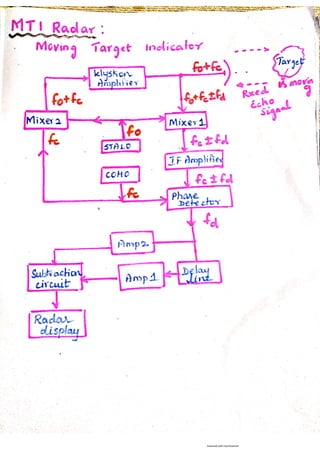 MTI Radar:
Moving Target Indicator
Klyshon
Amplifier
fo+fc
Target
is moving
Rxed
Echo
Signal
fo+fc
fo+fc±fd
Mixer 2
Mixer 1
fo
fc
fc±fd
STALO
I.F Amplifier
COHO
fc±fd
fc
Phase
Detector
fd
Amp2.
Subtraction
circuit
Amp1
Delay
line
Radar
display